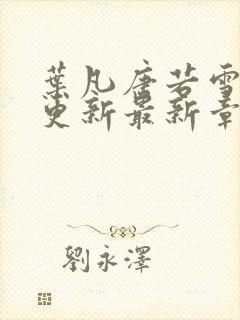 葉凡唐若雪
更新最新章
劉永澤